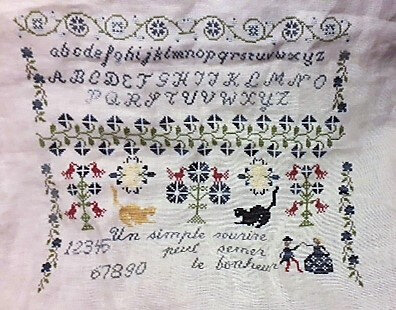 abcdefghijklmnopqrstuvwxyz
ABCDEFGHIJKLMNO
PQRSTUVWXYZ
Un simple sourire
12345 peut semer
67890 le bonheur